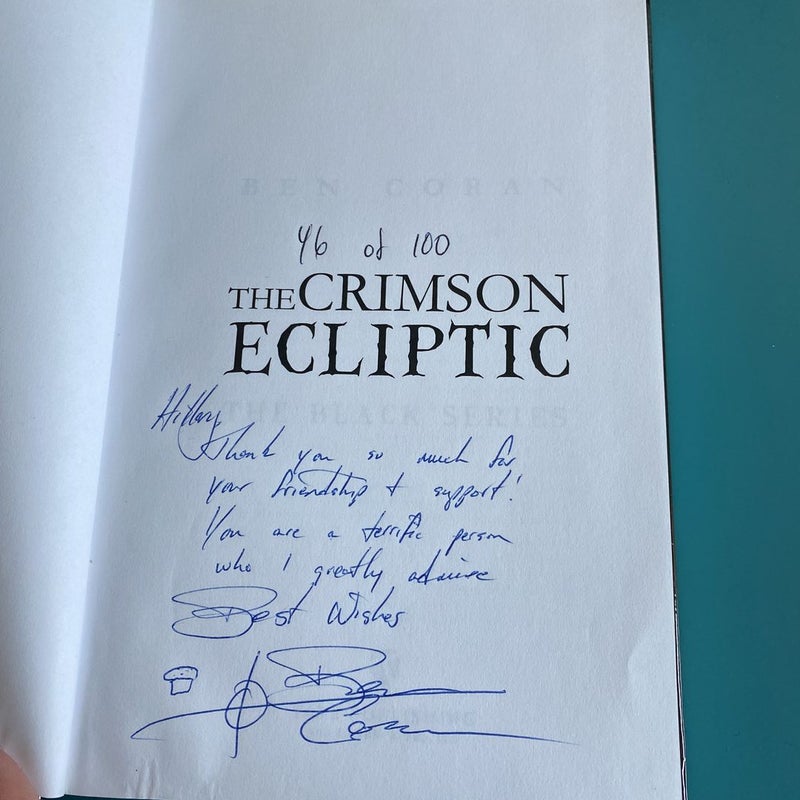 BEN CORAN
46 of 100
THE CRIMSON
ECLIPTIC
THE BLACK SERIES
Hillary,
Thank you so much for
your friendship + support!
You are a terrific person
who I greatly admire
Best Wishes
Ben
Coran